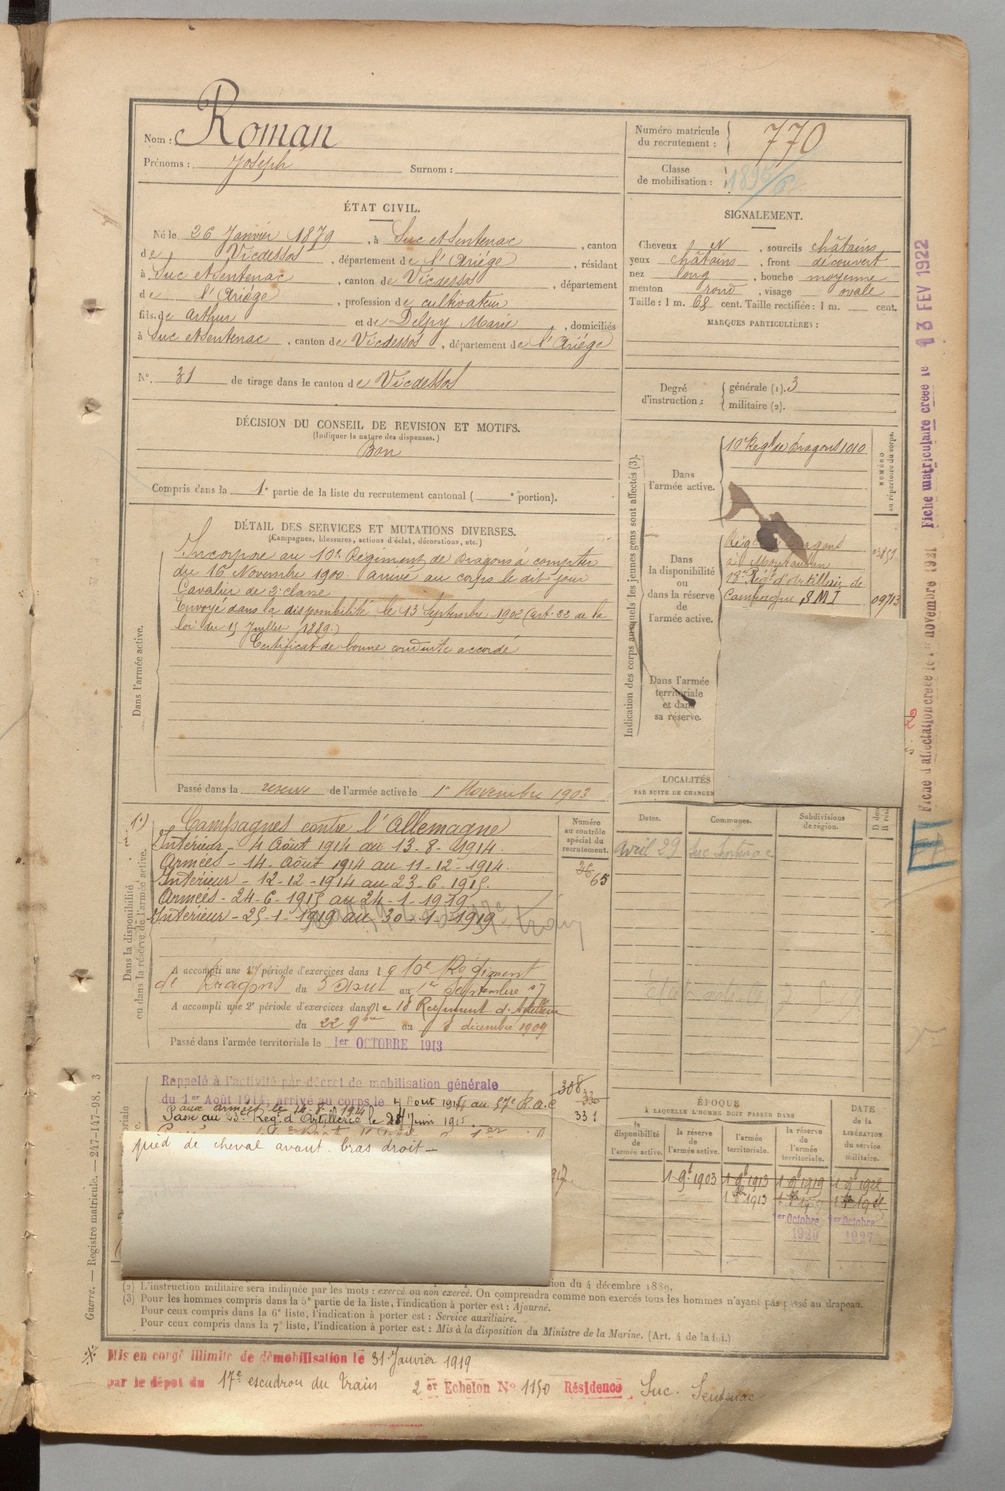 Nom : Roman
Prénoms : Joseph Surnom :
Numéro matricule du recrutement : 770
Classe de mobilisation : 1896
ÉTAT CIVIL.
Né le 26 Janvier 1879, à Suc et Sentenac, canton
de Vicdessos, département de l'Ariège, résidant
à Suc et Sentenac, canton de Vicdessos, département
de l'Ariège, profession de cultivateur
fils de Arthur et de Delpy Marie, domiciliés
à Suc et Sentenac, canton de Vicdessos, département de l'Ariège
N° 31 de tirage dans le canton de Vicdessos
SIGNALEMENT.
Cheveux N, sourcils châtains
yeux châtains, front découvert
nez long, bouche moyenne
menton rond, visage ovale
Taille : 1 m. 68 cent. Taille rectifiée : 1 m. cent.
MARQUES PARTICULIÈRES :
Degré d'instruction : générale (1). 3
militaire (2).
DÉCISION DU CONSEIL DE REVISION ET MOTIFS.
(Indiquer la nature des dispenses.)
Bon
Compris dans la 1e partie de la liste du recrutement cantonal ( e portion).
DÉTAIL DES SERVICES ET MUTATIONS DIVERSES.
(Campagnes, blessures, actions d'éclat, décorations, etc.)
Dans l'armée active.
Incorporé au 10e Régiment de Dragons à compter
du 16 Novembre 1900. arrivé au corps le dit jour
Cavalier de 2e classe
Envoyé dans la disponibilité le 13 Septembre 1902 (art. 22 de la
loi du 15 Juillet 1889)
Certificat de bonne conduite accordé
Passé dans la réserve de l'armée active le 1er Novembre 1903
Indication des corps auxquels les jeunes gens sont affectés (3).
Dans l'armée active.
10e Régt de Dragons 1010
NUMÉRO au répertoire du corps.
Dans la disponibilité ou dans la réserve de l'armée active.
à Montauban
18e Régt d'Artillerie de
Campagne, S M I 09713
Dans l'armée territoriale et dans sa réserve.
LOCALITÉS
PAR SUITE DE CHANGEM
Dates. Communes. Subdivisions de région.
Avril 29 Suc Sentenac
Dans la disponibilité ou dans la réserve de l'armée active.
Numéro au contrôle spécial du recrutement.
65
1°) Campagnes contre l'Allemagne
Intérieur - 4 Août 1914 au 13-8-1914.
Armées - 14. Août 1914 au 11-12-1914
Intérieur - 12-12-1914 au 23-6-1915.
Armées - 24-6-1915 au 24-1-1919
Intérieur - 25-1-1919 au 30-1-1919
A accompli une 1re période d'exercices dans le 10e Régiment
de Dragons du 5 Août au 1er Septembre 07
A accompli une 2e période d'exercices dans le 18 Régiment d'Artillerie
du 22 9bre au 8 décembre 1909
Passé dans l'armée territoriale le 1er OCTOBRE 1913
Rappelé à l'activité par décret de mobilisation générale
du 1er Août 1914, arrivé au corps le 4 Août 1914 au 57e R.a.c
aux armées le 14-8-1914
Passé au 23e Régt d'Artillerie le 24 Juin 1915
308
331
pied de cheval avant-bras droit —
ÉPOQUE
À LAQUELLE L'HOMME DOIT PASSER DANS
la disponibilité de l'armée active.
la réserve de l'armée active.
l'armée territoriale.
la réserve de l'armée territoriale.
DATE de la LIBÉRATION du service militaire.
1 9bre 1903 1 9bre 1913 1 9bre 1919
1er Octobre 1er Octobre
1927
(2) L'instruction militaire sera indiquée par les mots : exercé ou non exercé. On comprendra comme non exercés tous les hommes n'ayant pas passé au drapeau.
(3) Pour les hommes compris dans la 5e partie de la liste, l'indication à porter est : Ajourné.
Pour ceux compris dans la 6e liste, l'indication à porter est : Service auxiliaire.
Pour ceux compris dans la 7e liste, l'indication à porter est : Mis à la disposition du Ministre de la Marine. (Art. 4 de la loi.)
Mis en congé illimité de démobilisation le 31 Janvier 1919
par le dépôt du 17e escadron du Train 2er Echelon N° 1150 Résidence Suc. Sentenac
Guerre. — Registre matricule. — 247-147-98. 3
Fiche matriculaire créée le 13 FEV 1922
Fiche d'affectation créée le 1er novembre 1921